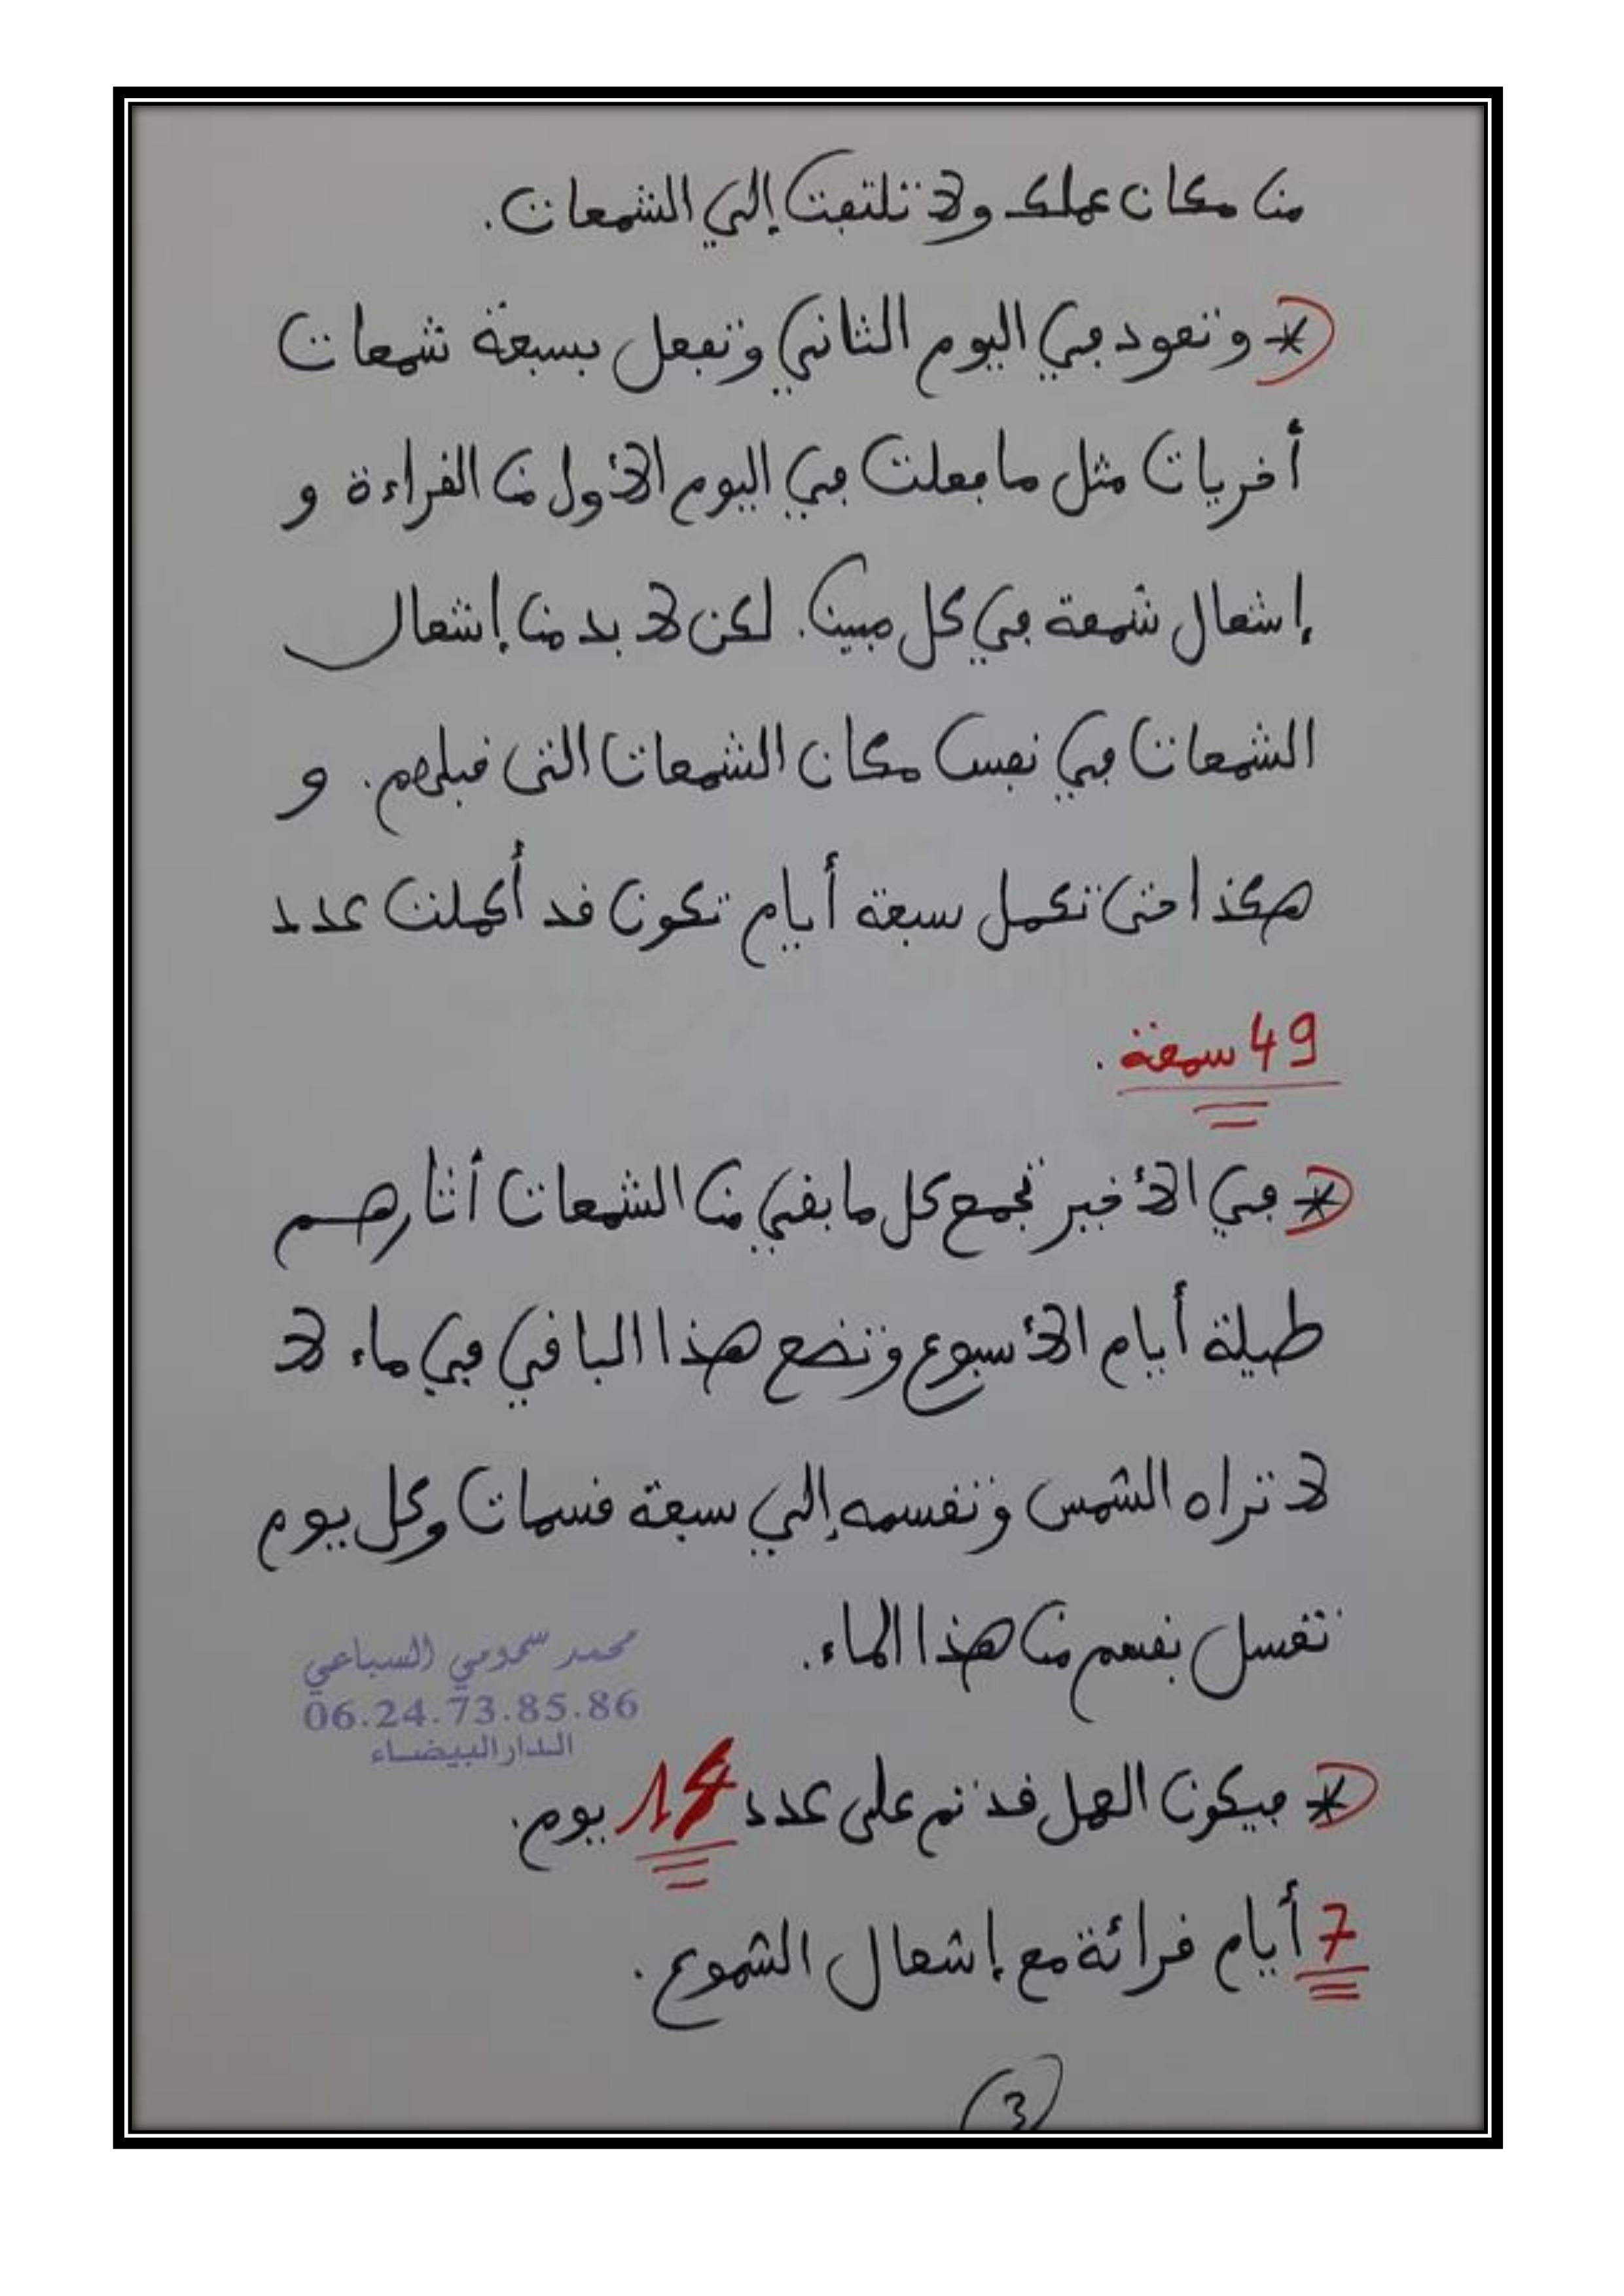 من مكان عملك ولا تلتفت إلي الشمعات.
* وتعود في اليوم الثاني وتفعل بسبعة شمعات
أخريات مثل ما فعلت في اليوم الأول من القراءة و
إشعال شمعة في كل مبيت. لكن لا بد من إشعال
الشمعات في نفس مكان الشمعات التى قبلهم. و
هكذا حتى تكمل سبعة أيام تكون قد أكملت عدد
49 سمعة.
* في الأخير تجمع كل ما بقي من الشمعات أثارهم
طيلة أيام الأسبوع وتضع هذا الباقي في ماء لا
لا تراه الشمس وتقسمه إلي سبعة قسمات وكل يوم
تغسل بقسم من هذا الماء.
محمد سمومي السباعي
06.24.73.85.86
الدار البيضاء
* فيكون العمل قد تم على عدد 14 يوم.
7 أيام قرائة مع إشعال الشموع.
3